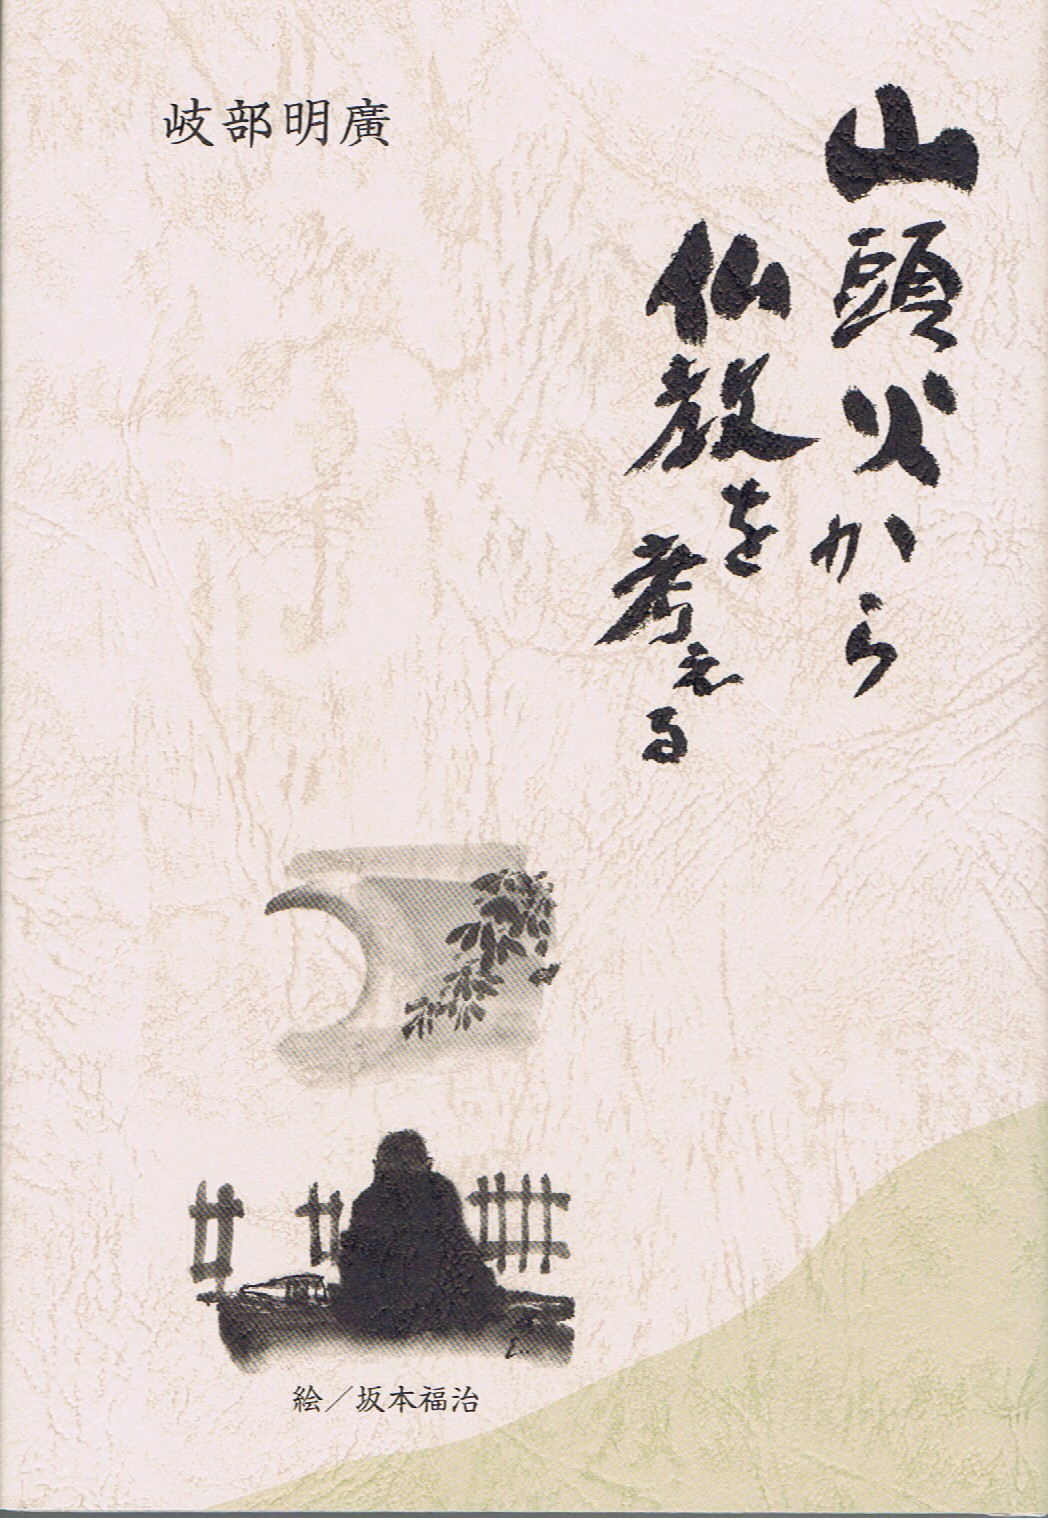 山頭火から
仏教を
考える
岐部明廣
絵／坂本福治